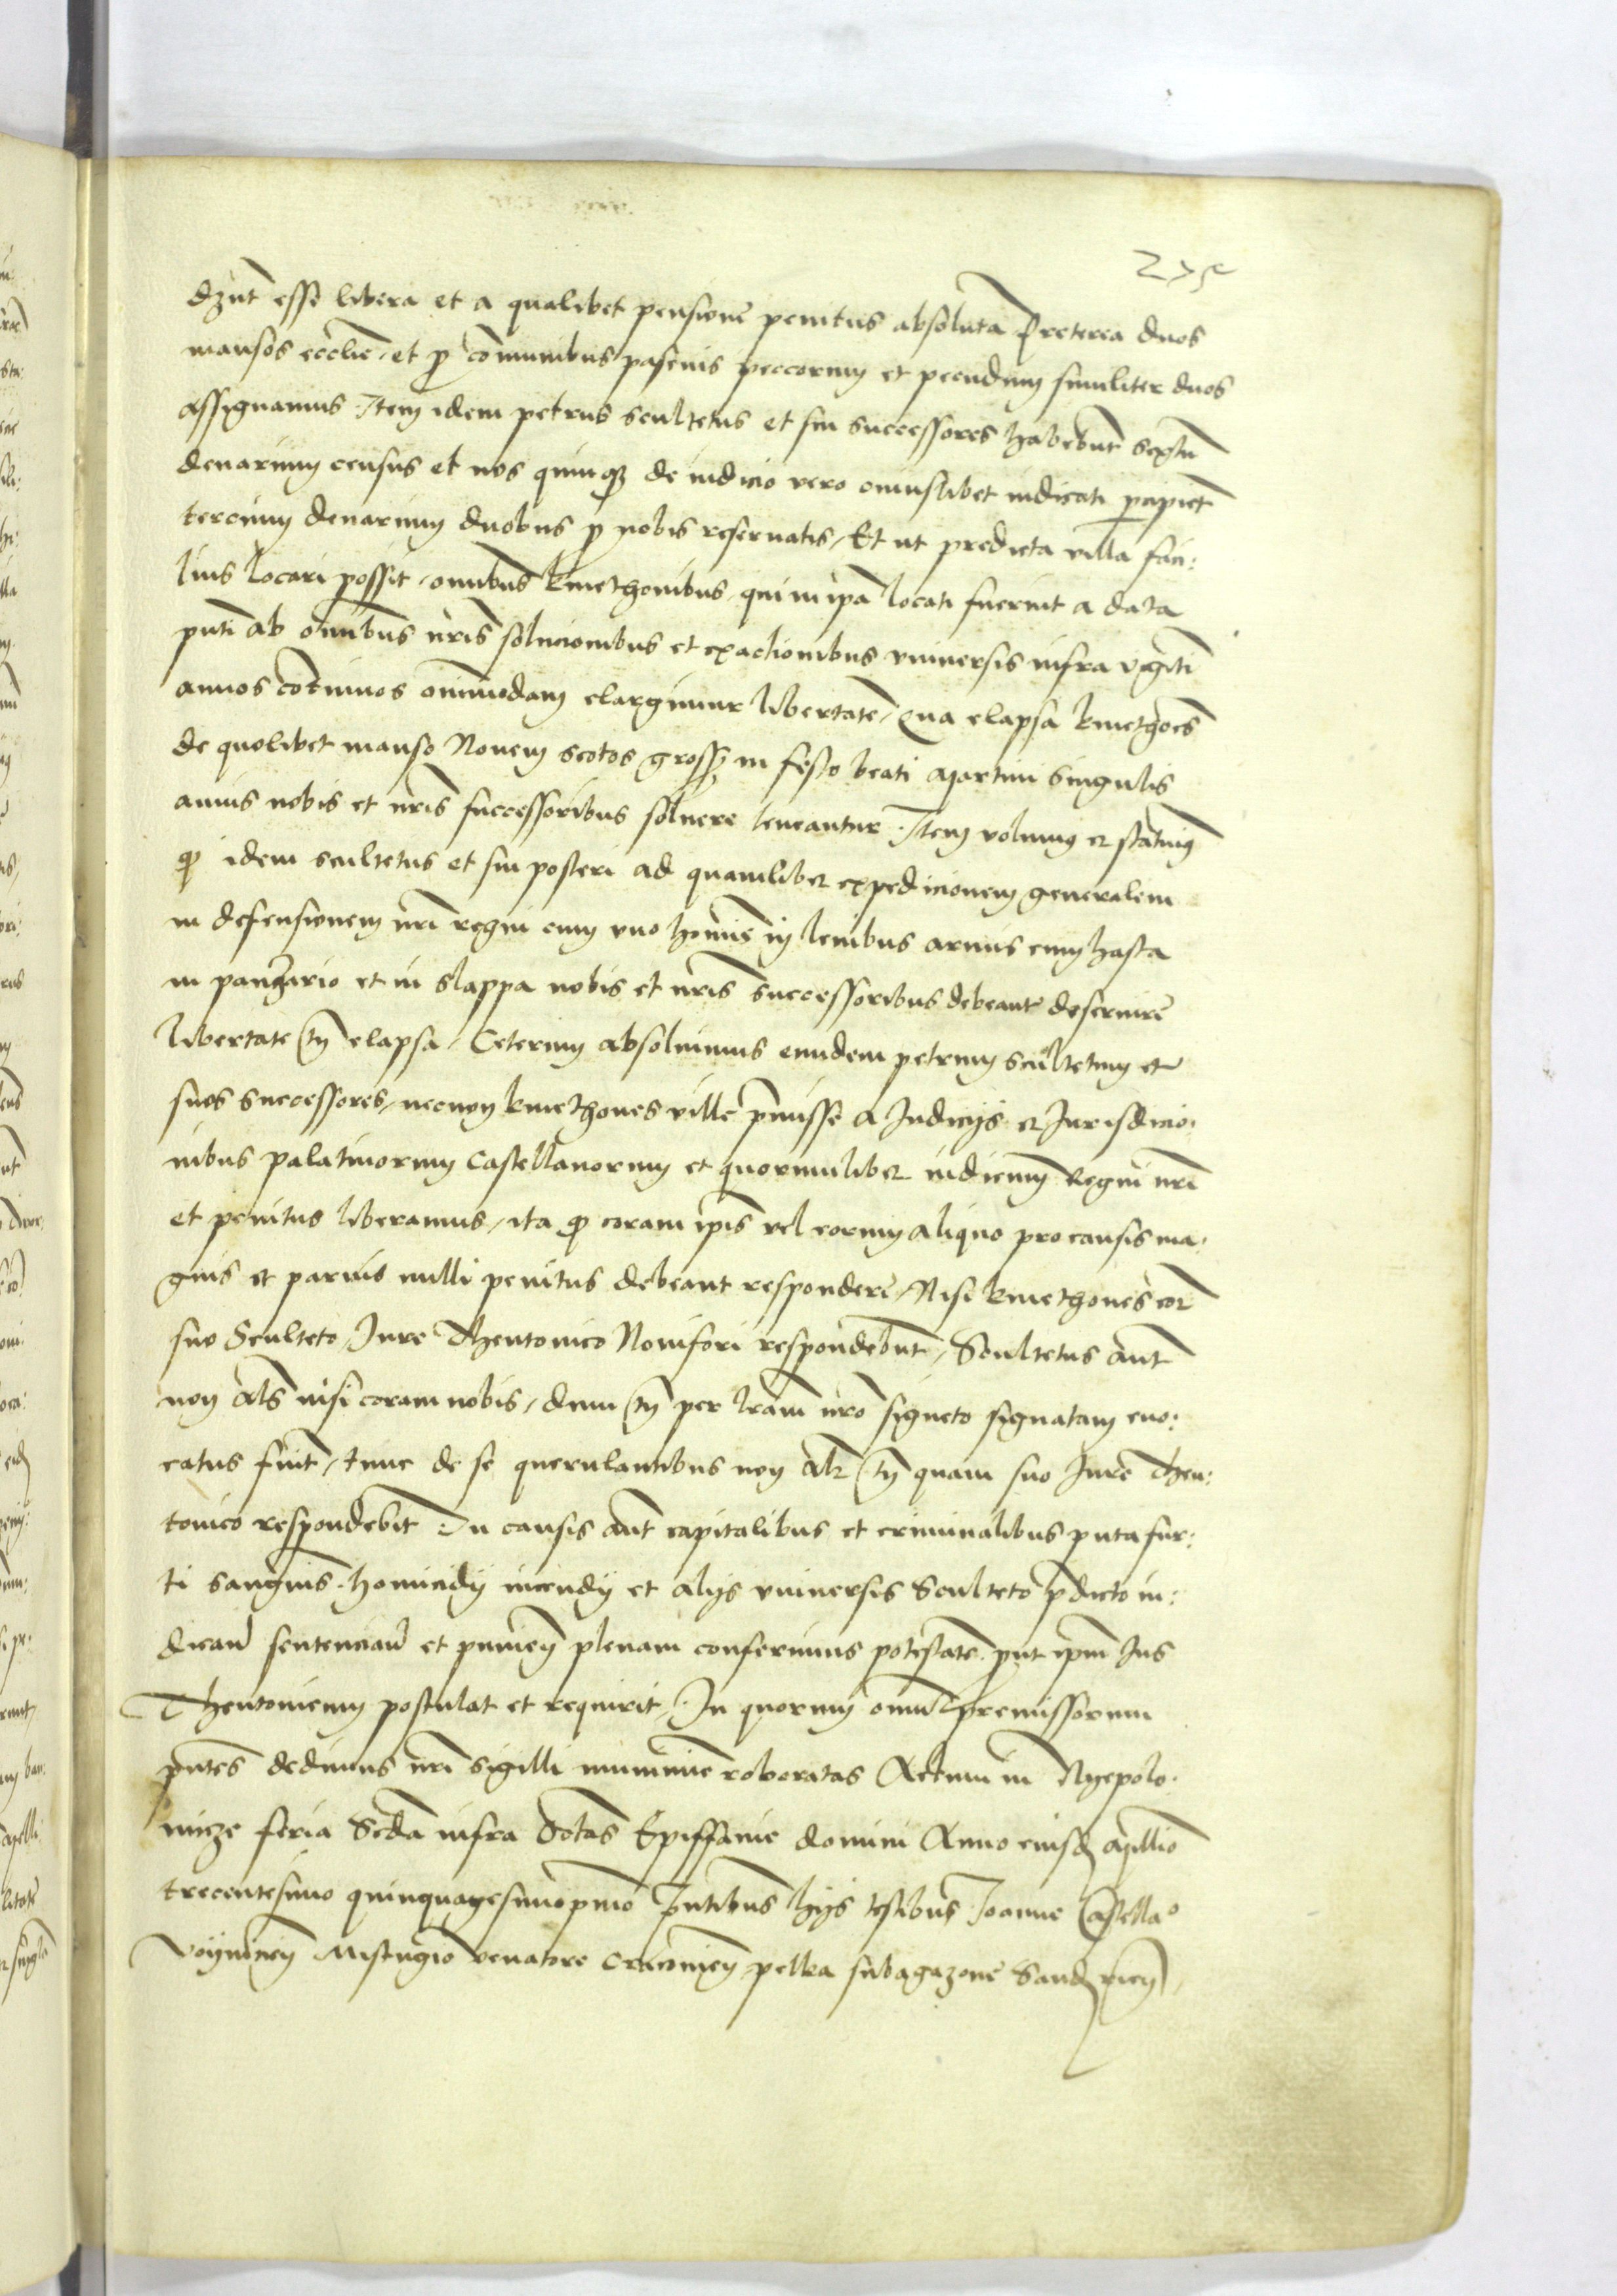 275
dzunt esse libera et a qualibet pensione penitus absoluta Preterea duos
mansos ecclie, et p comunibus pascuis peccorum et pecudum similiter duos
assignamus Item idem petrus scultetus et sui successores habebunt sextu
denarium census et nos quinque de iudicio vero cuiuslibet iudicati pcipiet
tercium denarium duobus p nobis reseruatis, Et ut predicta villa faci:
lius locari possit, omnibus kmethonibus, qui in ipa locati fuerint a data
pnti ab omnibus nris solucionibus et exactionibus vniuersis infra vginti
annos continuos omnimodam elargimur libertate, Qua elapsa kmethoes
de quolibet manso Nouem scotos gross in festo beati Martini singulis
annis nobis et nris successoribus soluere teneantur. Item volumus et statuimus
q idem scultetus et sui posteri ad quamlibet expedicionem generalem
in defensionem nri regni cum vno homine in leuibus armis cum hasta
in panzerio et in slappa nobis et nris successoribus debeant deseruire
libertate tn elapsa, Ceterum absoluimus eundem petrum scultetum et
suos successores, necnon kmethones ville pmisse a Iudicijs et Iurisdicio:
nibus palatinorum castellanorum et quorumlibet iudicum Regni nri
et penitus liberamus, ita q coram ipis vel eorum aliquo pro causis ma:
gnis et paruis nulli penitus debeant respondere, Nisi kmethones cor
suo Sculteto, Iure Theutonico Nouifori respondebunt, Scultetus aut
non als nisi coram nobis, dum tn per lram nro signeto signatam euo:
catus fuit, tunc de se querulantibus non alr tn quam suo Iure Theu:
tonico respondebit In causis aut capitalibus et criminalibus puta fur:
ti sanguis, homicidij incendij et alijs vniuersis Sculteto pdicto iu:
dicand sentenciand et puniend plenam conferimus potestate, put ipm Ius
Theutonicum postulat et requirit, In quorum omniu premissorum
pntes dedimus nri sigilli munimine roboratas Actum in Nyepolo:
micze feria Scda infra Octas Epiffanie domini Anno eiusd Millio
trecentesimo quinquagesimoprimo Pntibus hijs testibus Ioanne Castella
Voyniciens Mistugio venatore Cracouien pelka subagazone Sandomirien